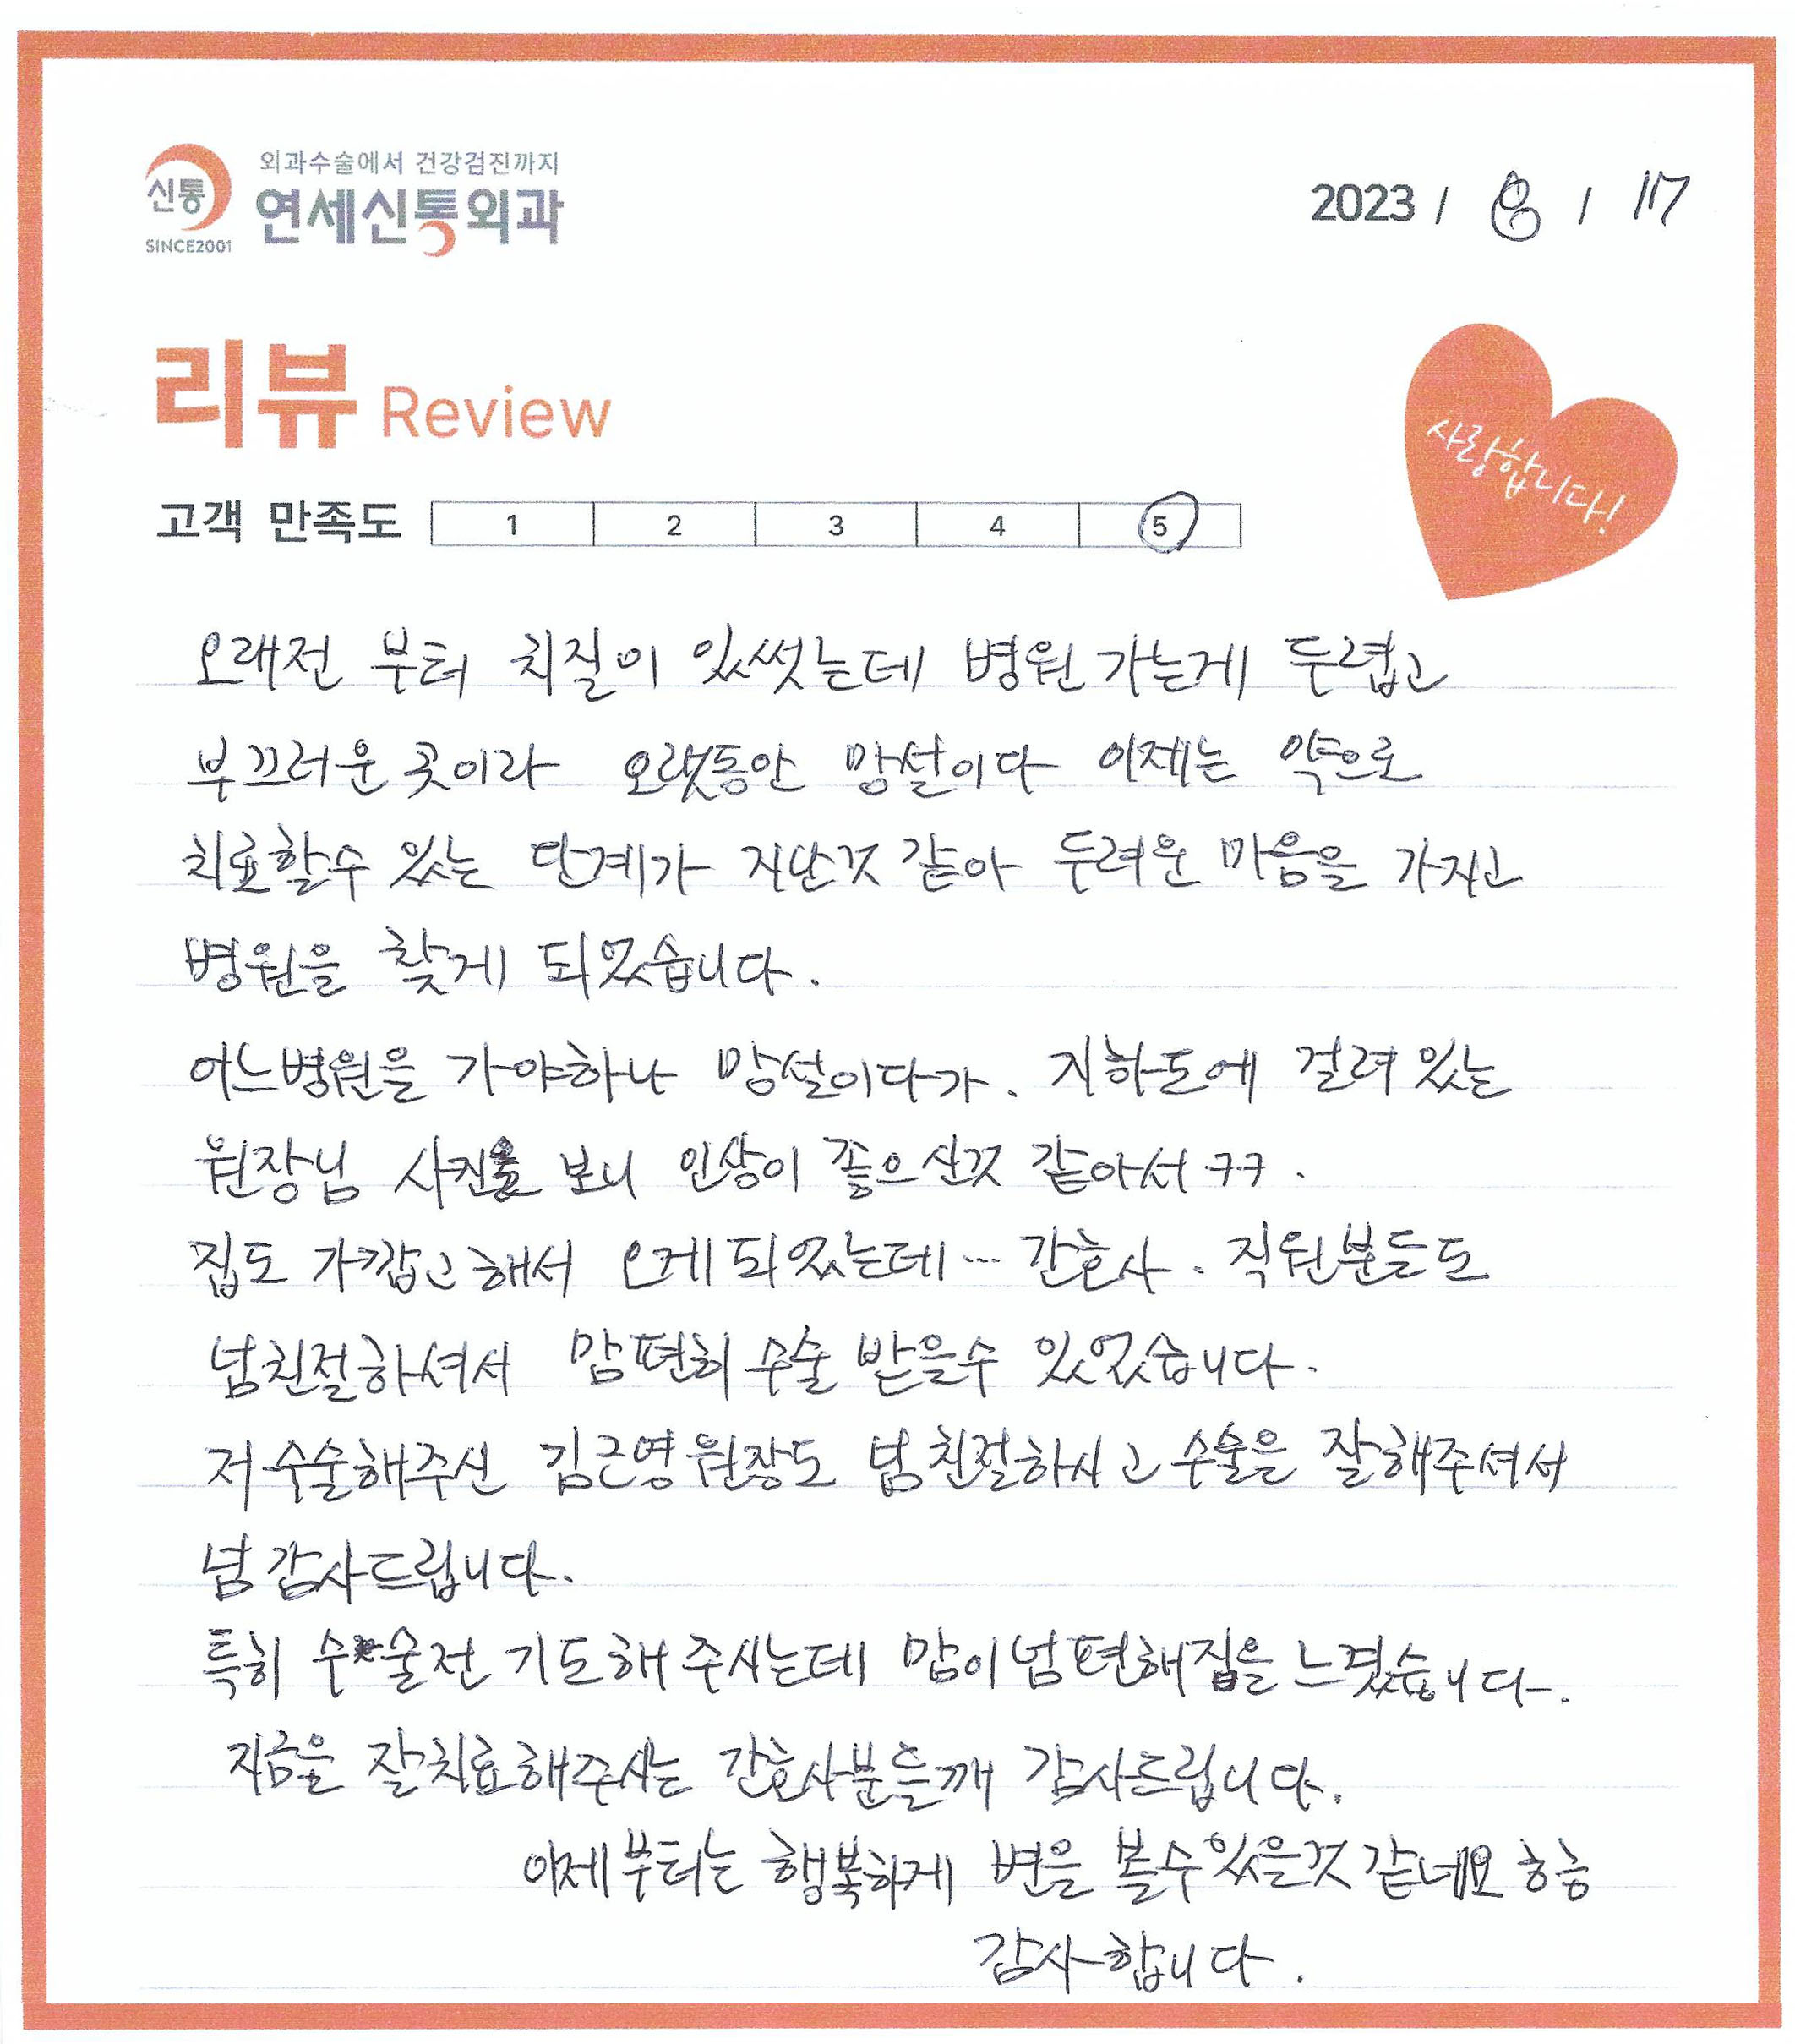 외과수술에서 건강검진까지
신통
연세신통외과
SINCE2001
2023 / 8 / 17
리뷰 Review
사랑합니다!
고객 만족도 1 2 3 4 5
오래전 부터 치질이 있썻는데 병원 가는게 두렵고
부끄러운 곳이라 오랫동안 망설이다 이제는 약으로
치료할수 있는 단계가 지난것 같아 두려운 마음을 가지고
병원을 찾게 되었습니다.
어느병원을 가야하나 망설이다가. 지하도에 걸려 있는
원장님 사진을 보니 인상이 좋으신것 같아서 ㅋㅋ.
집도 가깝고해서 오게 되었는데… 간호사. 직원분들도
넘친절하셔서 맘편히 수술 받을수 있었습니다.
저수술해주신 김근영원장도 넘친절하시고 수술은 잘해주셔서
넘감사드립니다.
특히 수술전 기도해 주시는데 맘이넘편해짐을 느꼈습니다.
지금을 잘치료해주시는 간호사분들께 감사드립니다.
이제부터는 행복하게 변을 볼수있을것 같네요 ㅎㅎ
감사합니다.